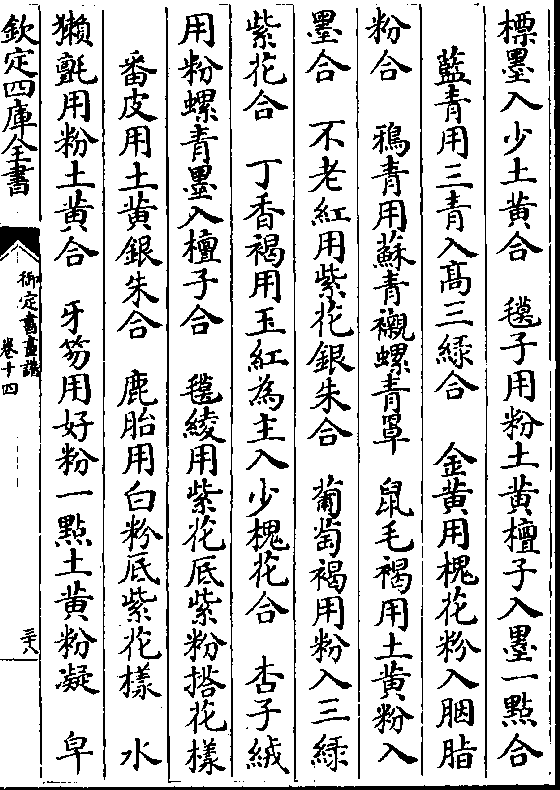 標墨入少土黄合　氊子用粉土黄檀子入墨一點合
藍青用三青入髙三緑合　金黄用槐花粉入胭脂
粉合　鴉青用蘇青襯螺青罩　鼠毛褐用土黄粉入
墨合　不老紅用紫花銀朱合　葡萄褐用粉入三緑
紫花合　丁香褐用玉紅為主入少槐花合　杏子絨
用粉螺青墨入檀子合　氊綾用紫花底紫粉搭花様
番皮用土黄銀朱合　鹿胎用白粉底紫花様　水
獺氈用粉土黄合　牙笏用好粉一點土黄粉凝　皁
欽定四庫全書
御定書畫譜
卷十四
三十八